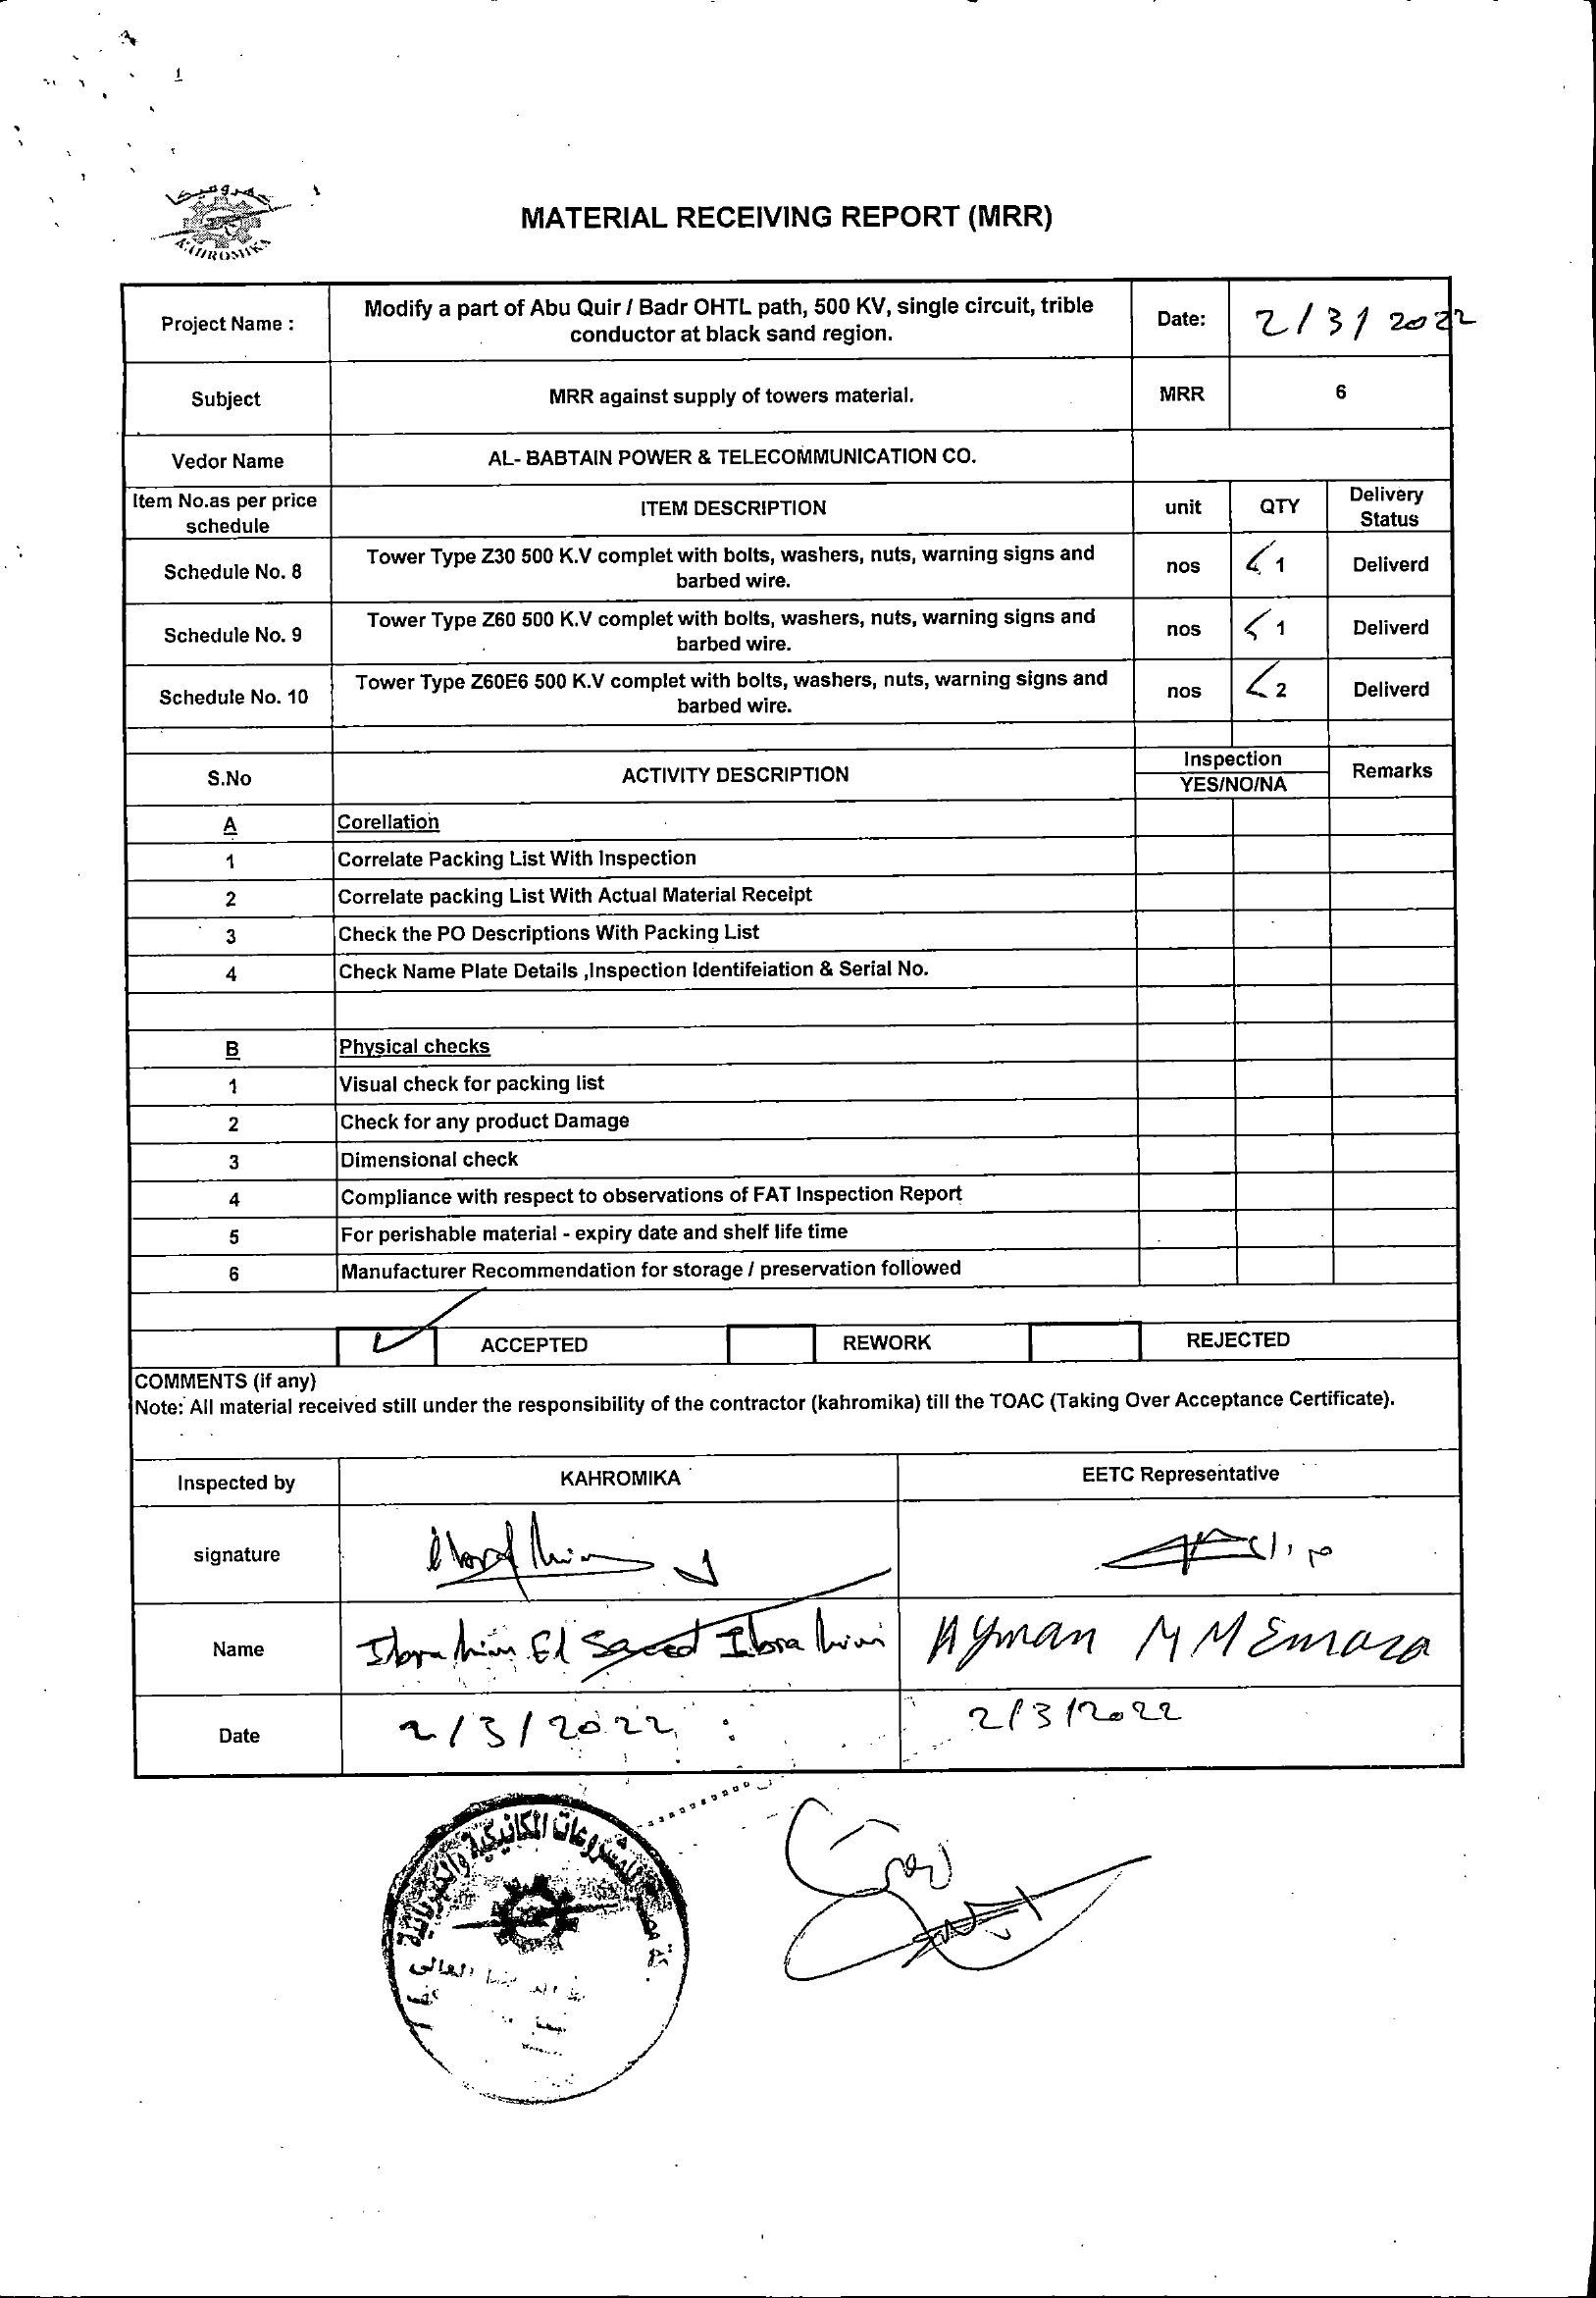 كهروميكا
KAHROMIKA
MATERIAL RECEIVING REPORT (MRR)
Project Name :
Modify a part of Abu Quir / Badr OHTL path, 500 KV, single circuit, trible
conductor at black sand region.
Date:
2/3/2022
Subject
MRR against supply of towers material.
MRR
6
Vedor Name
AL- BABTAIN POWER & TELECOMMUNICATION CO.
Item No.as per price
schedule
ITEM DESCRIPTION
unit
QTY
Delivery
Status
Schedule No. 8
Tower Type Z30 500 K.V complet with bolts, washers, nuts, warning signs and
barbed wire.
nos
1
Deliverd
Schedule No. 9
Tower Type Z60 500 K.V complet with bolts, washers, nuts, warning signs and
barbed wire.
nos
1
Deliverd
Schedule No. 10
Tower Type Z60E6 500 K.V complet with bolts, washers, nuts, warning signs and
barbed wire.
nos
2
Deliverd
S.No
ACTIVITY DESCRIPTION
Inspection
YES/NO/NA
Remarks
A
Corellation
1
Correlate Packing List With Inspection
2
Correlate packing List With Actual Material Receipt
3
Check the PO Descriptions With Packing List
4
Check Name Plate Details ,Inspection Identifeiation & Serial No.
B
Physical checks
1
Visual check for packing list
2
Check for any product Damage
3
Dimensional check
4
Compliance with respect to observations of FAT Inspection Report
5
For perishable material - expiry date and shelf life time
6
Manufacturer Recommendation for storage / preservation followed
ACCEPTED
REWORK
REJECTED
COMMENTS (if any)
Note: All material received still under the responsibility of the contractor (kahromika) till the TOAC (Taking Over Acceptance Certificate).
Inspected by
KAHROMIKA
EETC Representative
signature
Name
Ibrahim El Saeed Ibrahim
Ayman M M Emara
Date
2/3/2022
2/3/2022
للمشروعات الميكانيكية والكهربائية
العالى